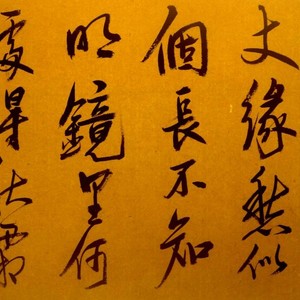 丈緣愁似
個長不知
明鏡里何
處得秋霜